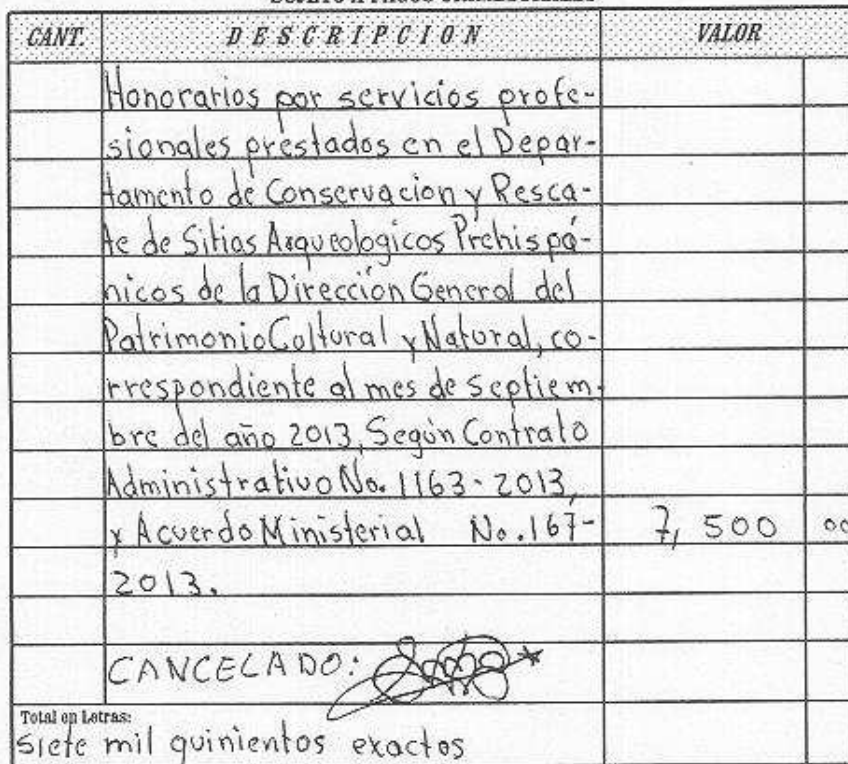 CANT. DESCRIPCION VALOR
Honorarios por servicios profe-
sionales prestados en el Depar-
tamento de Conservacion y Resca-
te de Sitios Arqueologicos Prehispá-
nicos de la Dirección General del
Patrimonio Cultural y Natural, co-
rrespondiente al mes de Septiem-
bre del año 2013, Según Contrato
Administrativo No. 1163-2013,
y Acuerdo Ministerial No. 167- 7,500 00
2013.
CANCELADO:
Total en Letras:
Siete mil quinientos exactos